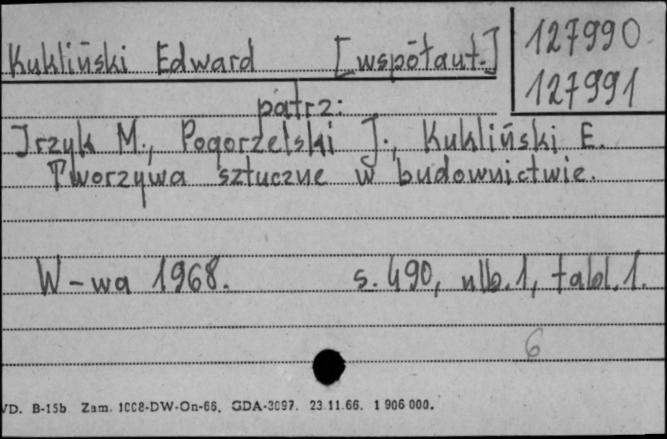 Kukliński Edward [współaut.]
127990
127991
patrz:
Jrzyk M., Pogorzelski J., Kukliński E.
Tworzywa sztuczne w budownictwie.
W-wa 1968. s. 490, nlb. 1, tabl. 1.
6
VD. B-15b Zam. 1008-DW-On-66. GDA-3097. 23.11.66. 1 906 000.